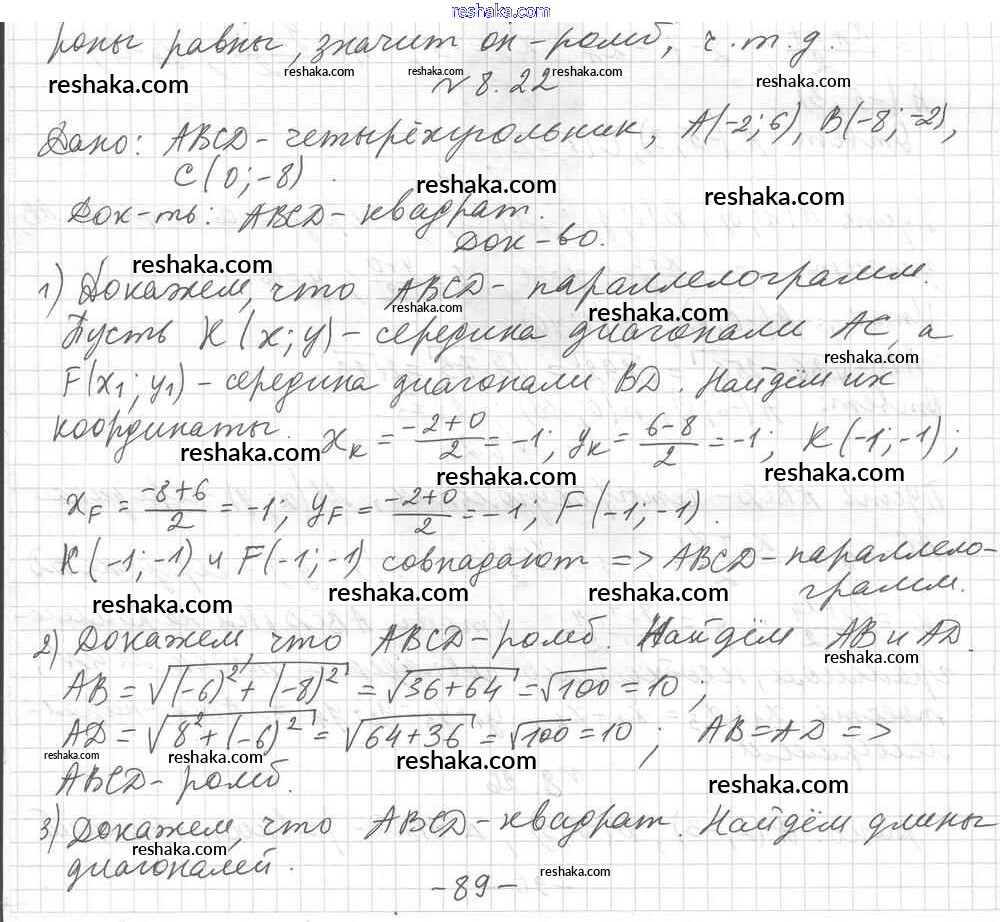 reshaka.com
роны равны, значит он - ромб, ч.т.д.
reshaka.com reshaka.com reshaka.com reshaka.com reshaka.com
№ 8.22
Дано: ABCD - четырёхугольник, A(-2; 6), B(-8; -2),
C(0; -8).
reshaka.com reshaka.com
Док-ть: ABCD - квадрат.
Док-во.
reshaka.com
1) Докажем, что ABCD - параллелограмм.
reshaka.com reshaka.com
Пусть K(x; y) - середина диагонали AC, а
reshaka.com
F(x₁; y₁) - середина диагонали BD. Найдём их
координаты. x_K = (-2+0)/2 = -1; y_K = (6-8)/2 = -1; K(-1; -1);
reshaka.com reshaka.com reshaka.com
x_F = (-8+6)/2 = -1; y_F = (-2+0)/2 = -1; F(-1; -1).
K(-1; -1) и F(-1; -1) совпадают => ABCD - параллело-
грамм.
reshaka.com reshaka.com reshaka.com
2) Докажем, что ABCD - ромб. Найдём AB и AD.
reshaka.com
AB = √((-6)² + (-8)²) = √(36+64) = √100 = 10;
AD = √(8² + (-6)²) = √(64+36) = √100 = 10; AB = AD =>
reshaka.com reshaka.com reshaka.com
ABCD - ромб.
reshaka.com
3) Докажем, что ABCD - квадрат. Найдём длины
reshaka.com
диагоналей.
reshaka.com
- 89 -